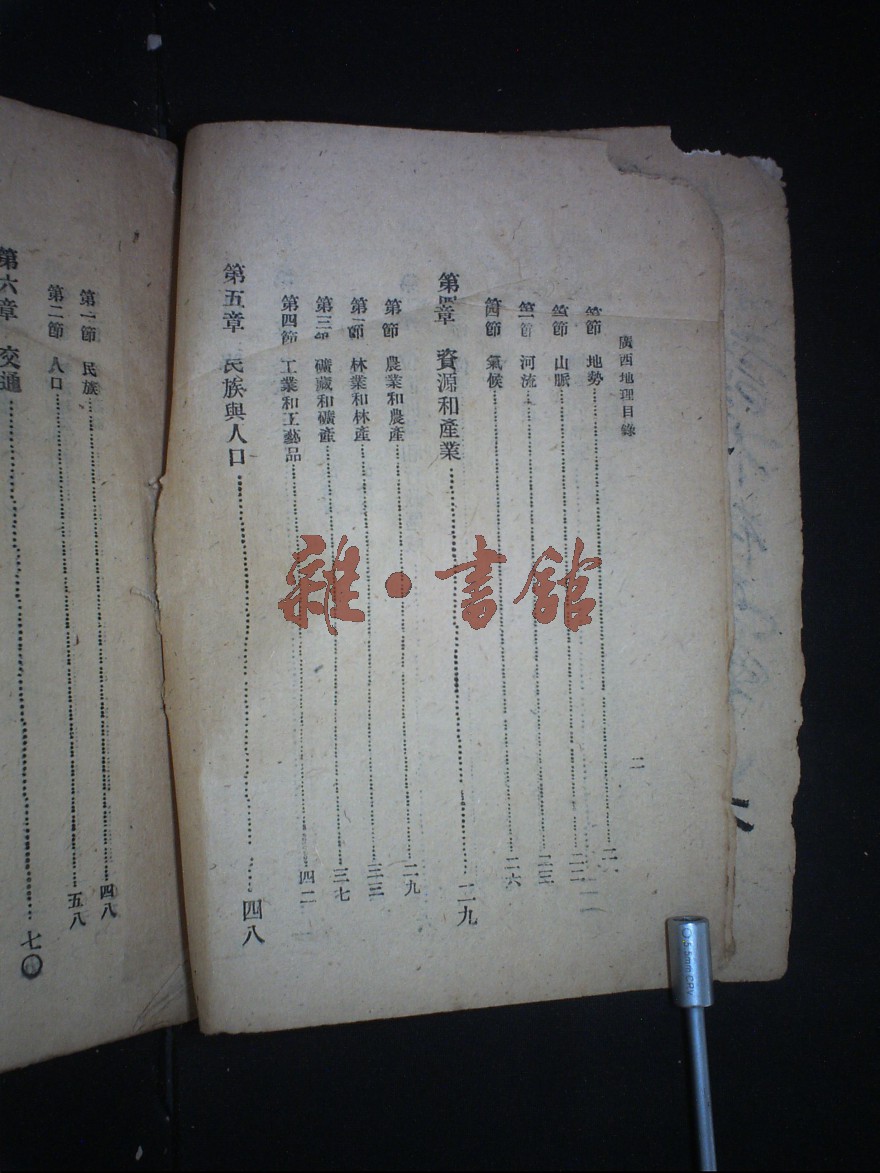 廣西地理目錄
二
第 節 地勢
第 節 山脈
第 節 河流
第四節 氣候……二六
第四章 資源和產業……二九
第 節 農業和農產……二九
第二節 林業和林產……三三
第三節 礦藏和礦產……三七
第四節 工業和工藝品……四二
第五章 民族與人口……四八
第一節 民族……四八
第二節 人口……五八
第六章 交通……七〇
雜·書館
5.5mm CRV